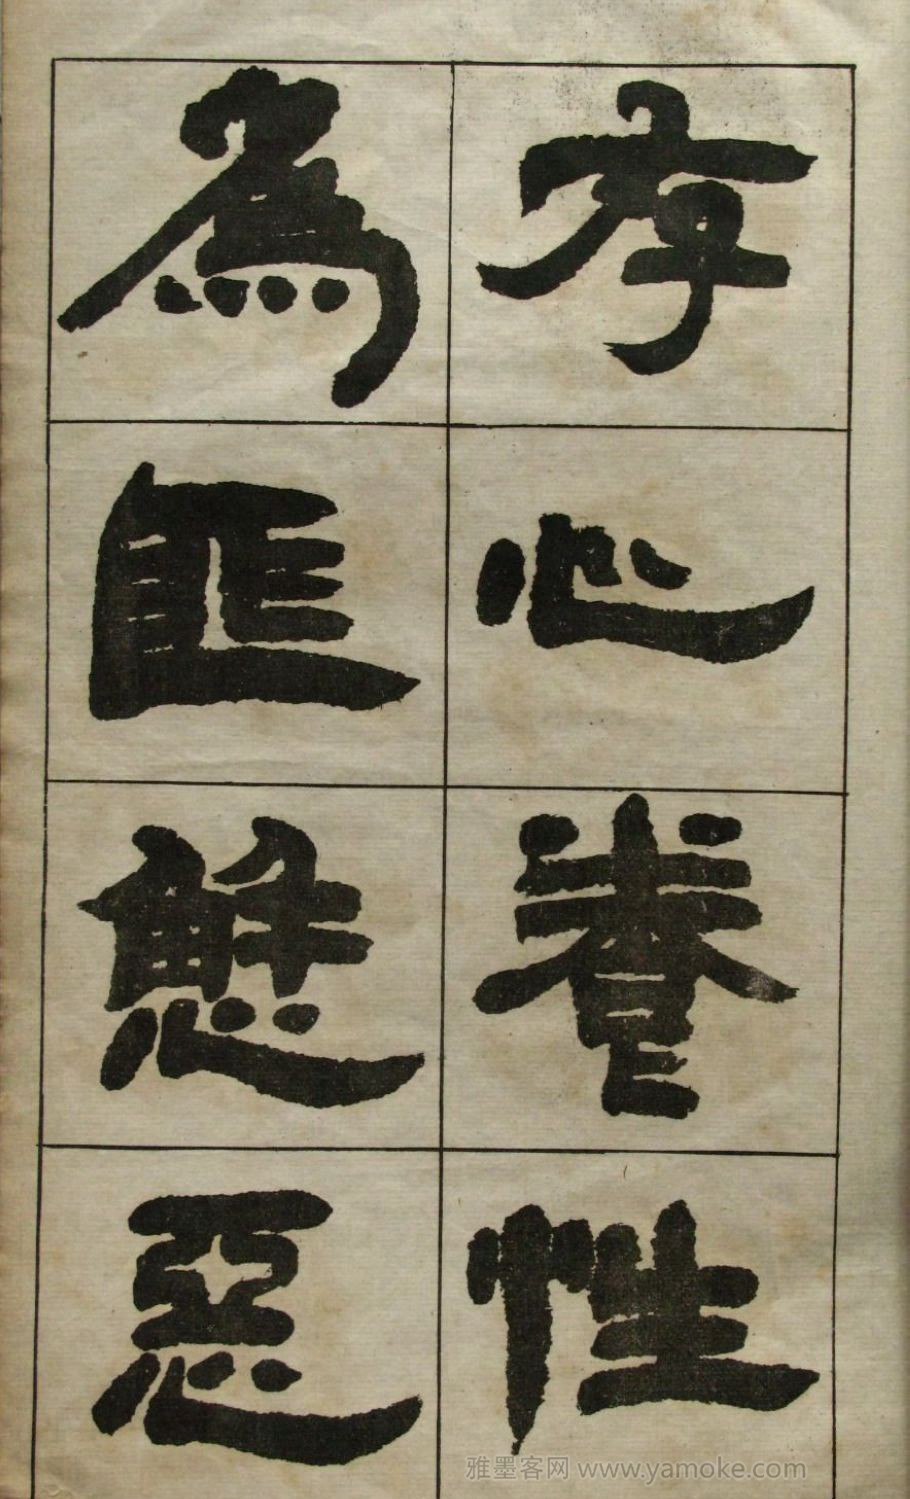 存心養性
為匪懈惡
雅墨客网 www.yamoke.com